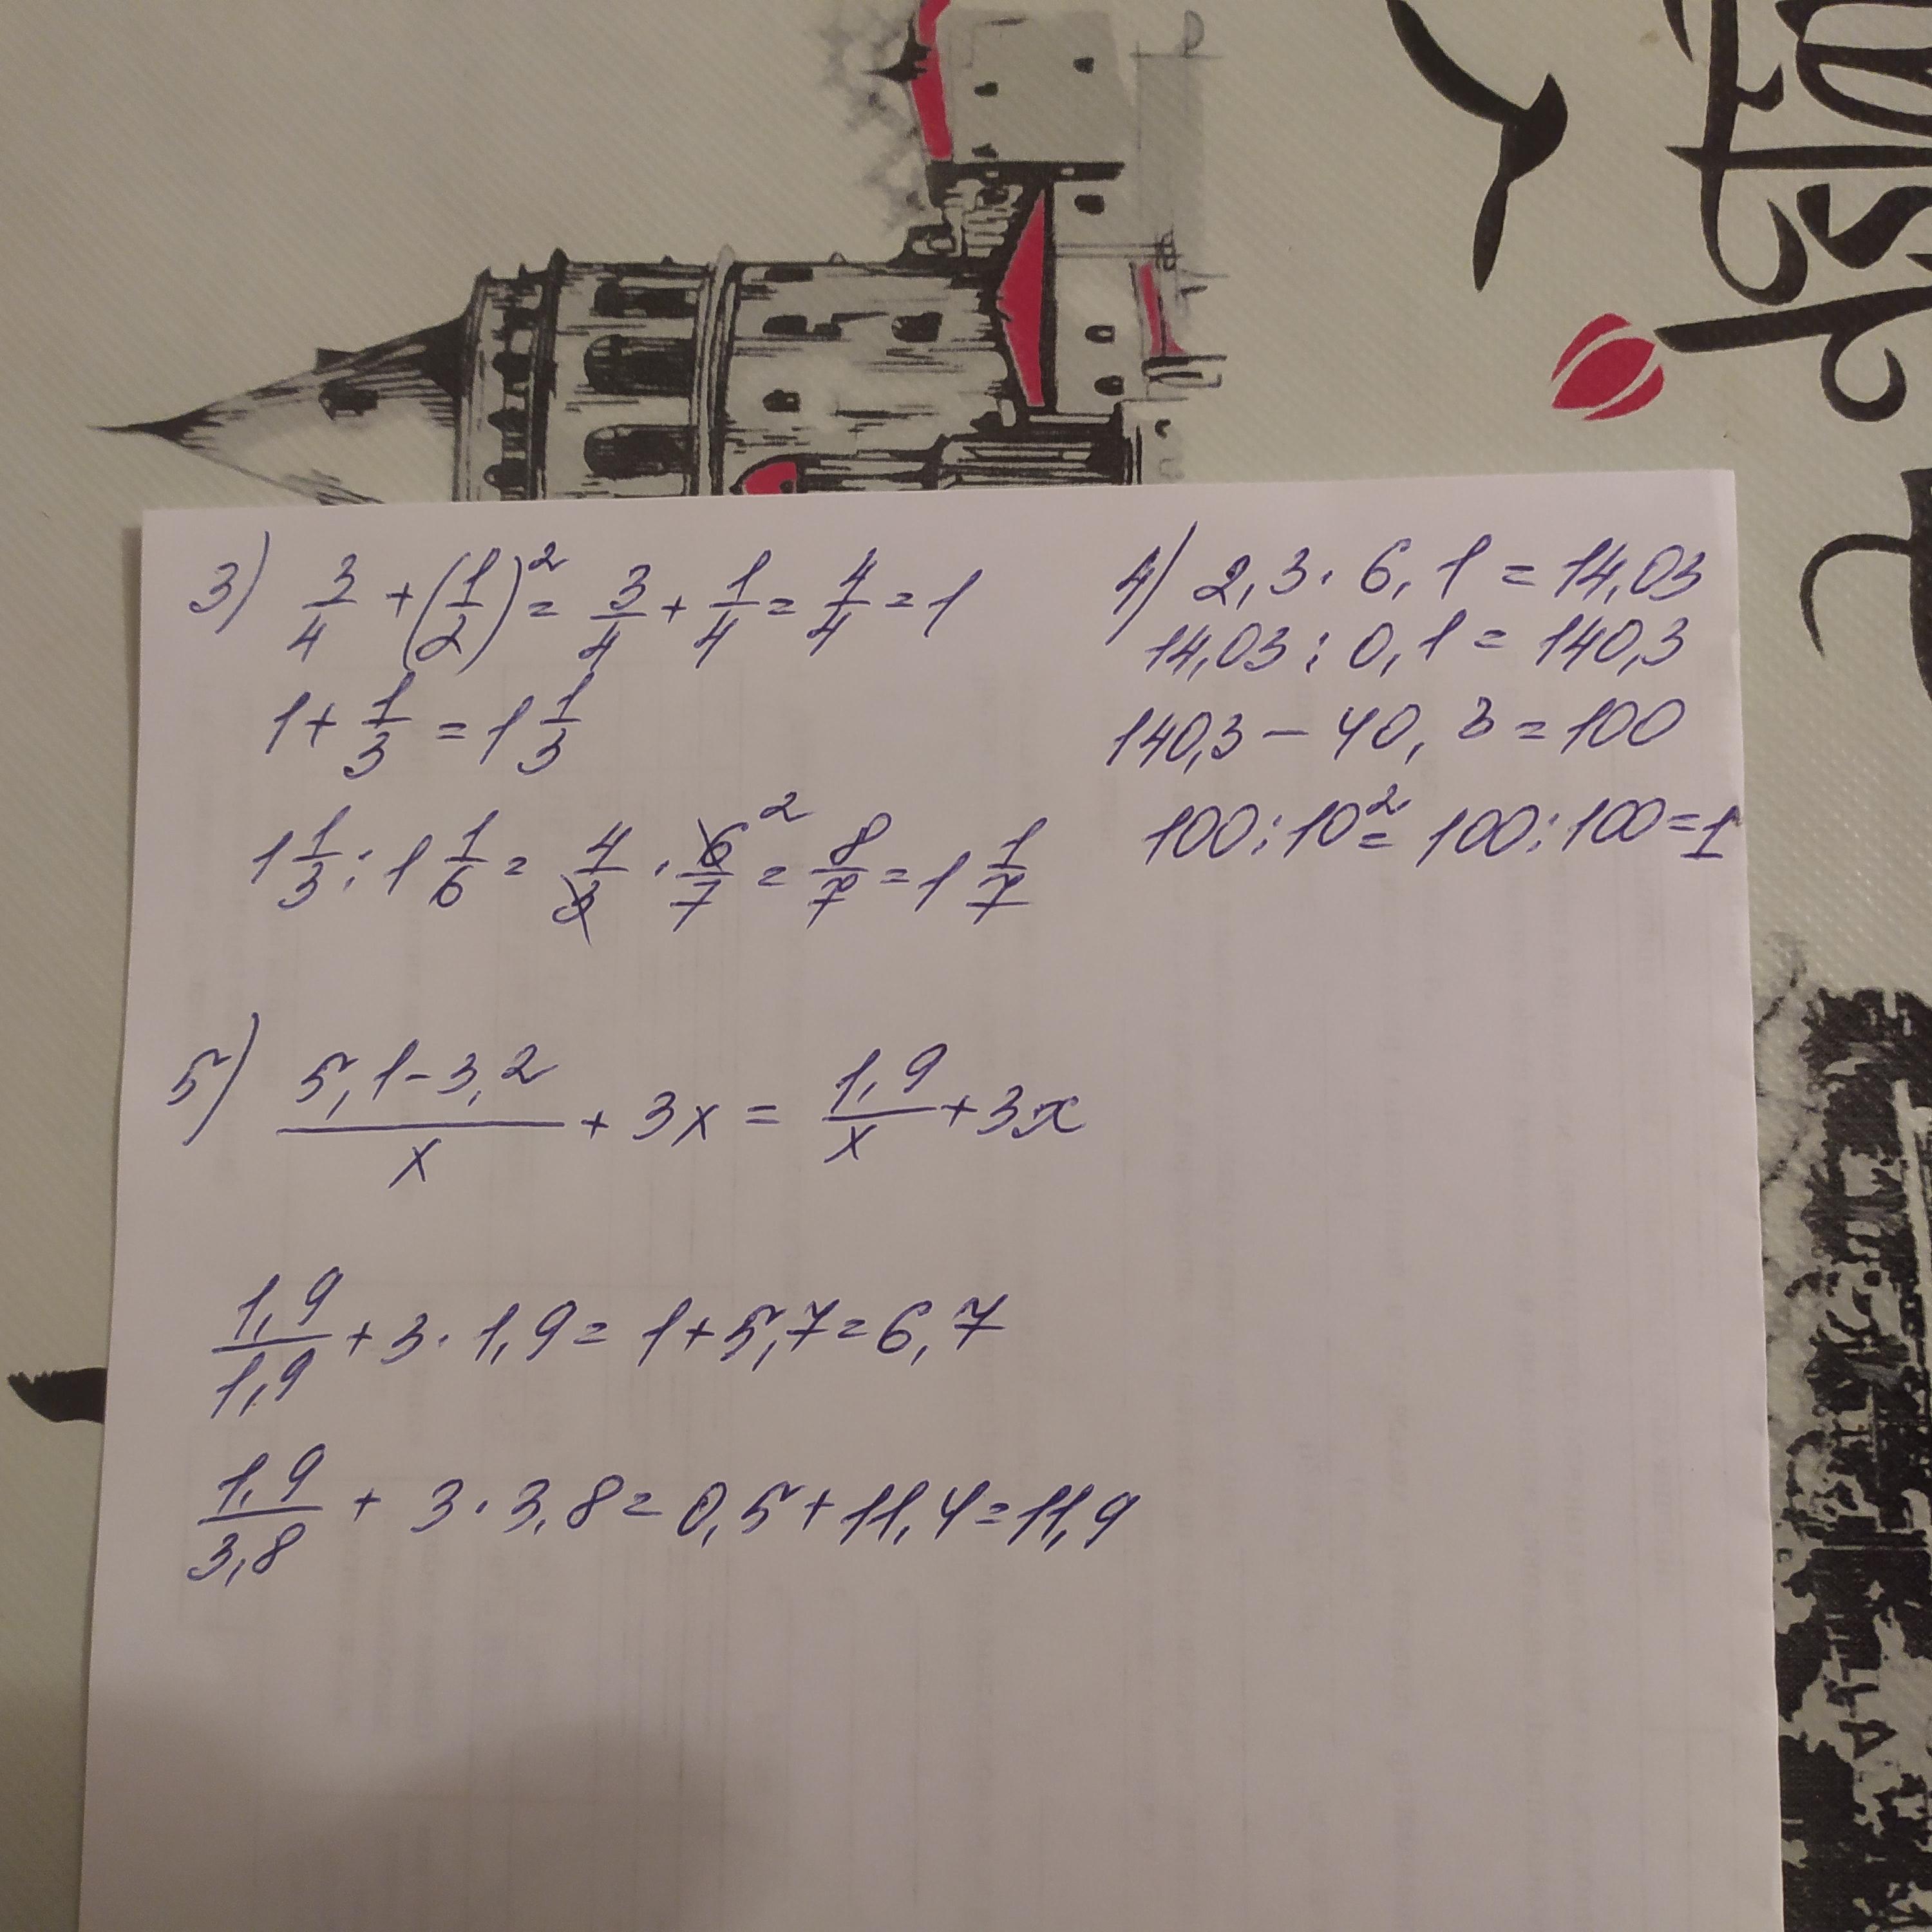 3) 3/4 + (1/2)² = 3/4 + 1/4 = 4/4 = 1
1 + 1/3 = 1 1/3
1 1/3 : 1 1/6 = 4/3 · 6/7 ² = 8/7 = 1 1/7
4) 2,3 · 6,1 = 14,03
14,03 : 0,1 = 140,3
140,3 - 40,3 = 100
100 : 10² = 100 : 100 = 1
5) (5,1 - 3,2)/x + 3x = 1,9/x + 3x
1,9/1,9 + 3 · 1,9 = 1 + 5,7 = 6,7
1,9/3,8 + 3 · 3,8 = 0,5 + 11,4 = 11,9